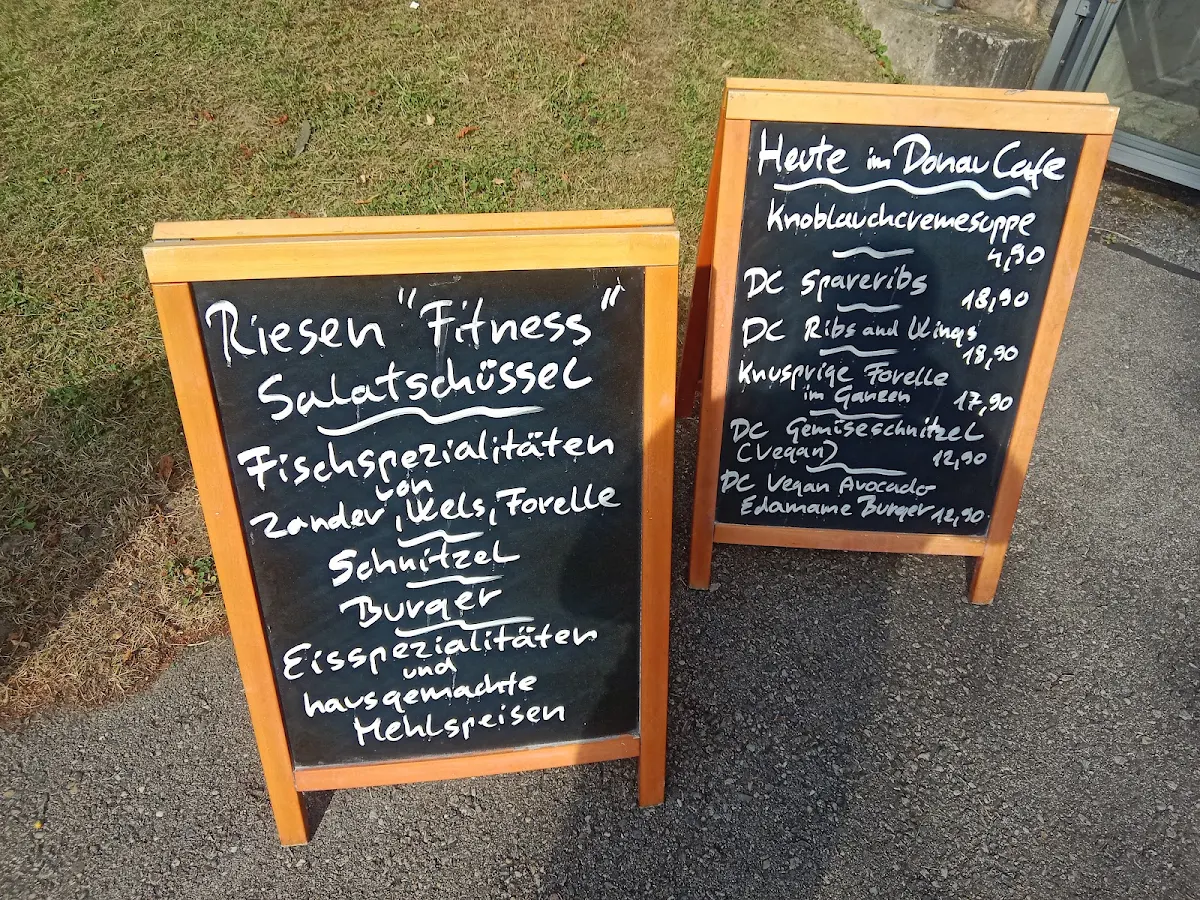 Riesen "Fitness"
Salatschüssel
Fischspezialitäten
von
Zander, Wels, Forelle
Schnitzel
Burger
Eisspezialitäten
und
hausgemachte
Mehlspeisen
Heute im Donau Cafe
Knoblauchcremesuppe
4,90
DC Spareribs
18,90
DC Ribs and Wings
18,90
Knusprige Forelle
im Ganzen 17,90
DC Gemiseschnitzel
(Vegan) 12,90
DC Vegan Avocado
Edamame Burger 12,90